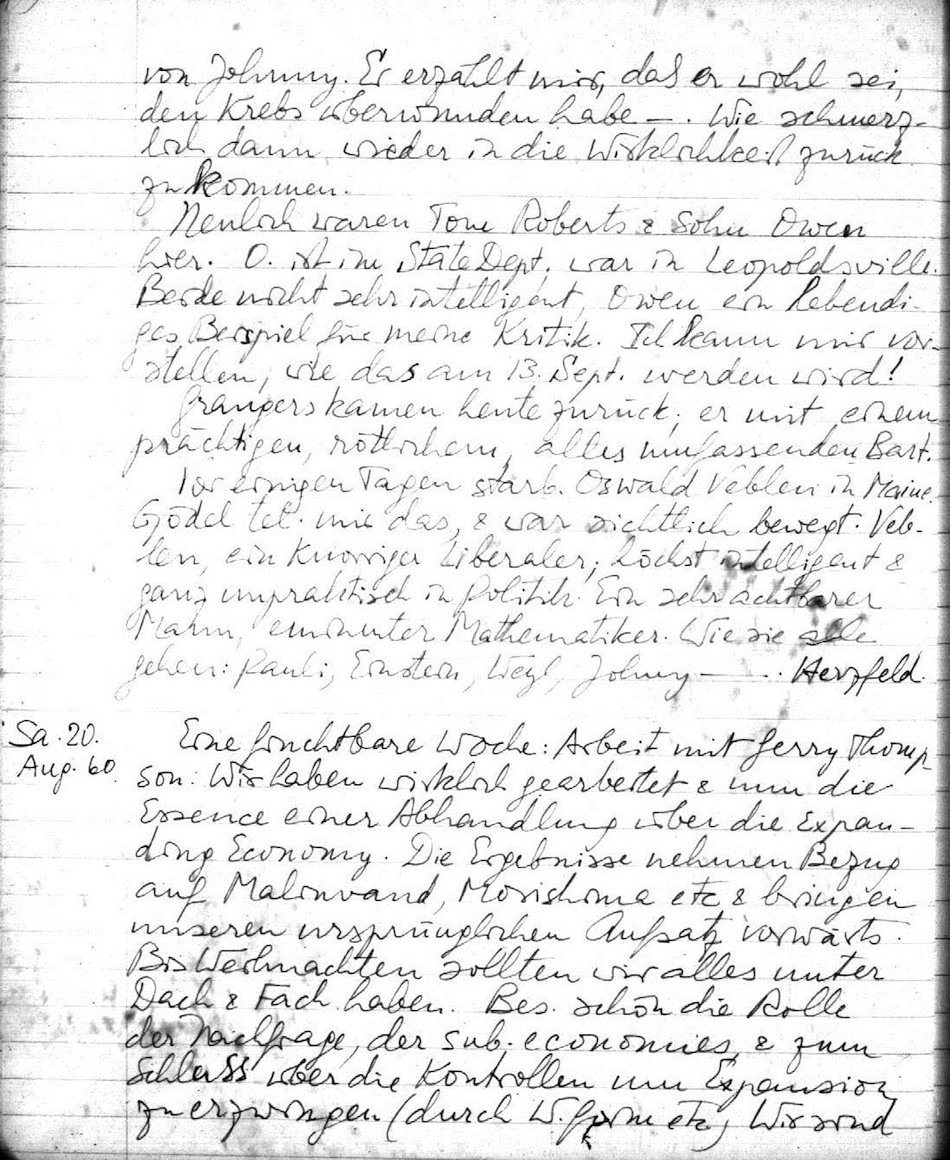 von Johnny. Er erzählt mir, daß er wohl sei,
den Krebs überwunden habe —. Wie schmerz-
lich dann wieder in die Wirklichkeit zurück
zu kommen.
Neulich waren Tom Roberts & Sohn Owen
hier. O. ist im State Dept. war in Leopoldsville.
Beide nicht sehr intelligent, Owen ein lebendi-
ges Beispiel für meine Kritik. Ich kann mir vor-
stellen, wie das am 13. Sept. werden wird!
Grangers kamen heute zurück; er mit einem
prächtigen, rötlichem, alles umfassenden Bart.
Vor einigen Tagen starb Oswald Veblen in Maine.
Gödel tel. mir das, & war sichtlich bewegt. Veb-
len, ein knorriger Liberaler, höchst intelligent &
ganz unpraktisch in Politik. Ein sehr achtbarer
Mann, eminenter Mathematiker. Wie sie alle
gehen: Pauli, Einstein, Weyl, Johnny — . . Herzfeld.
Sa. 20.
Aug. 60.
Eine fruchtbare Woche: Arbeit mit Gerry Thomp
son. Wir haben wirklich gearbeitet & nun die
Essence einer Abhandlung über die Expan-
ding Economy. Die Ergebnisse nehmen Bezug
auf Malinvaud, Morishima etc & bringen
unseren ursprünglichen Aufsatz vorwärts.
Bis Weihnachten sollten wir alles unter
Dach & Fach haben. Bes. schön die Rolle
der Nachfrage, der sub-economies, & zum
Schluss über die Kontrollen um Expansion
zu erzwingen (durch W. etc) Wir sind